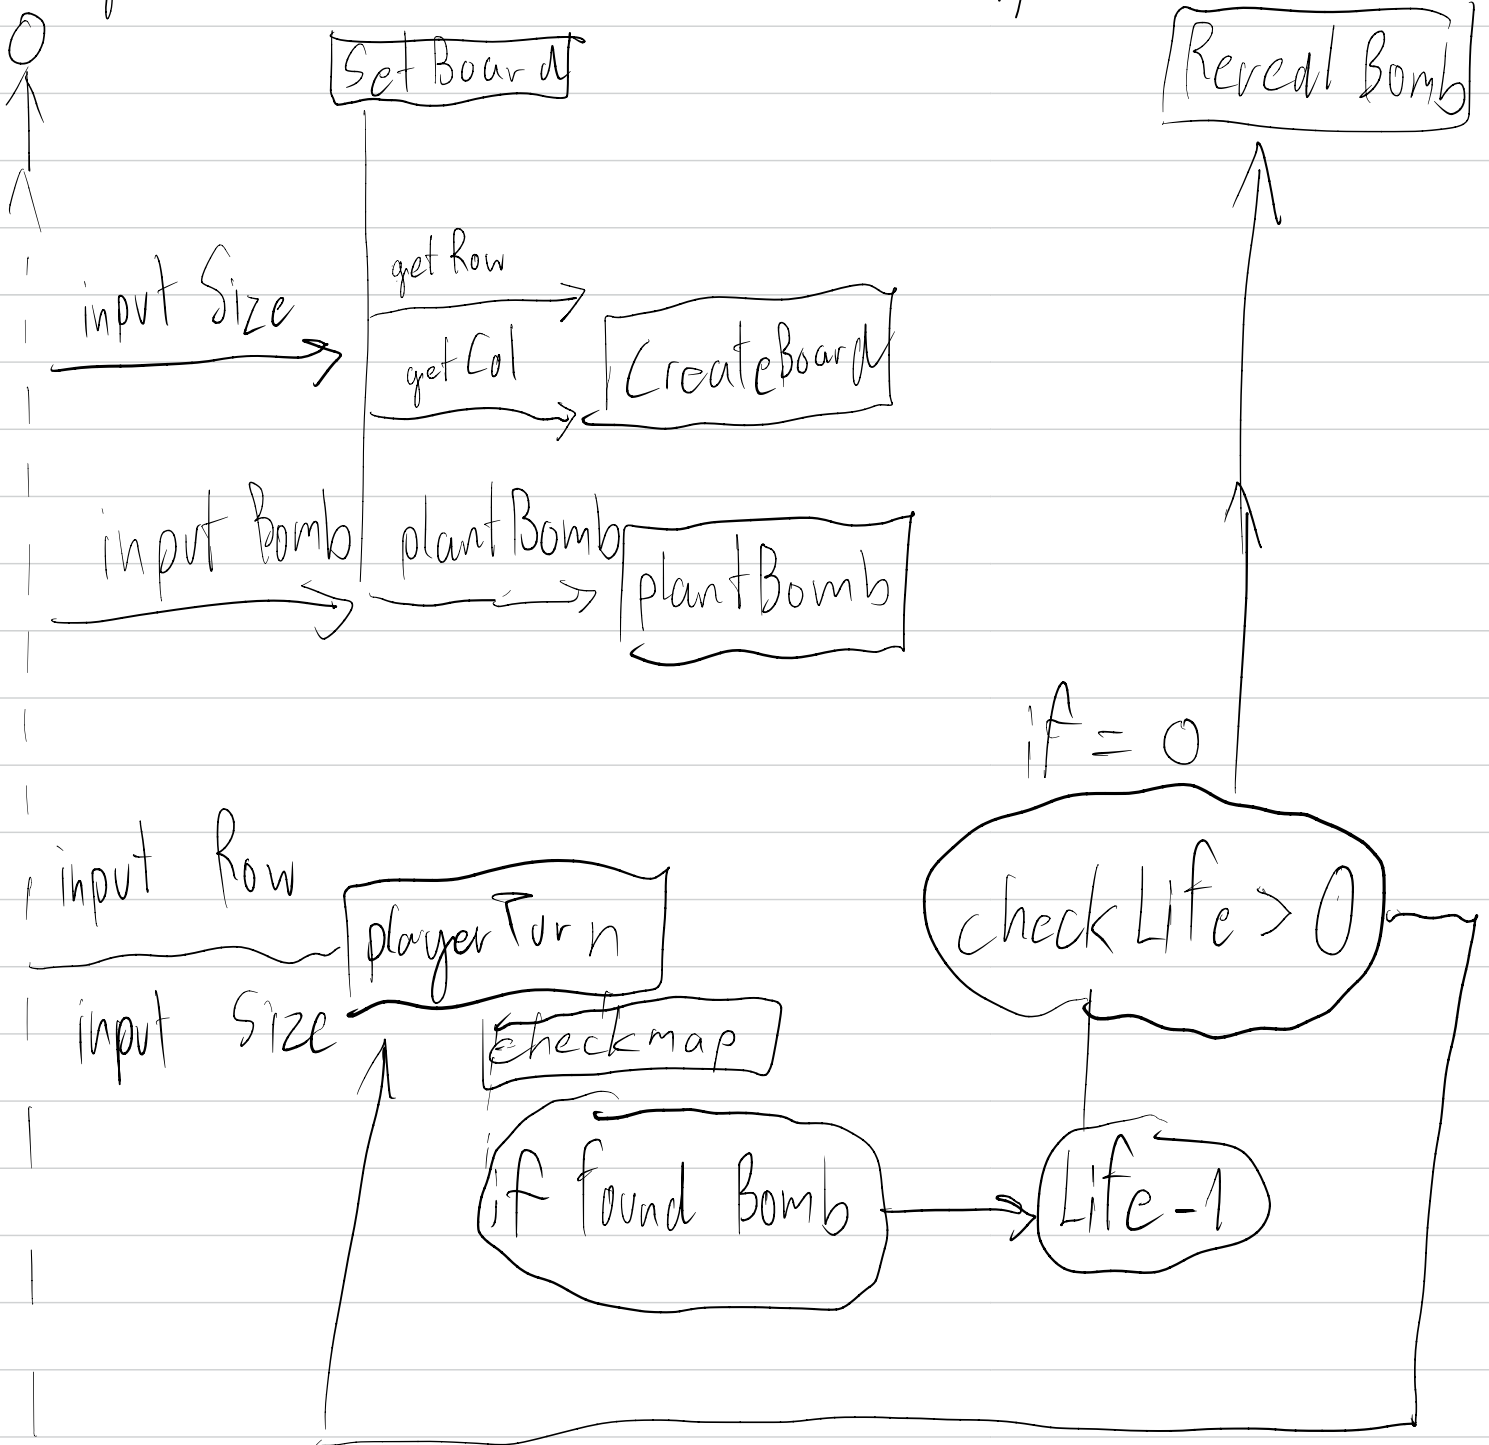 SetBoard
Reveal Bomb
getRow
input Size
getCol
CreateBoard
input Bomb
plantBomb
plantBomb
if = 0
input Row
playerTurn
checkLife > 0
input Size
checkmap
if found Bomb
Life-1